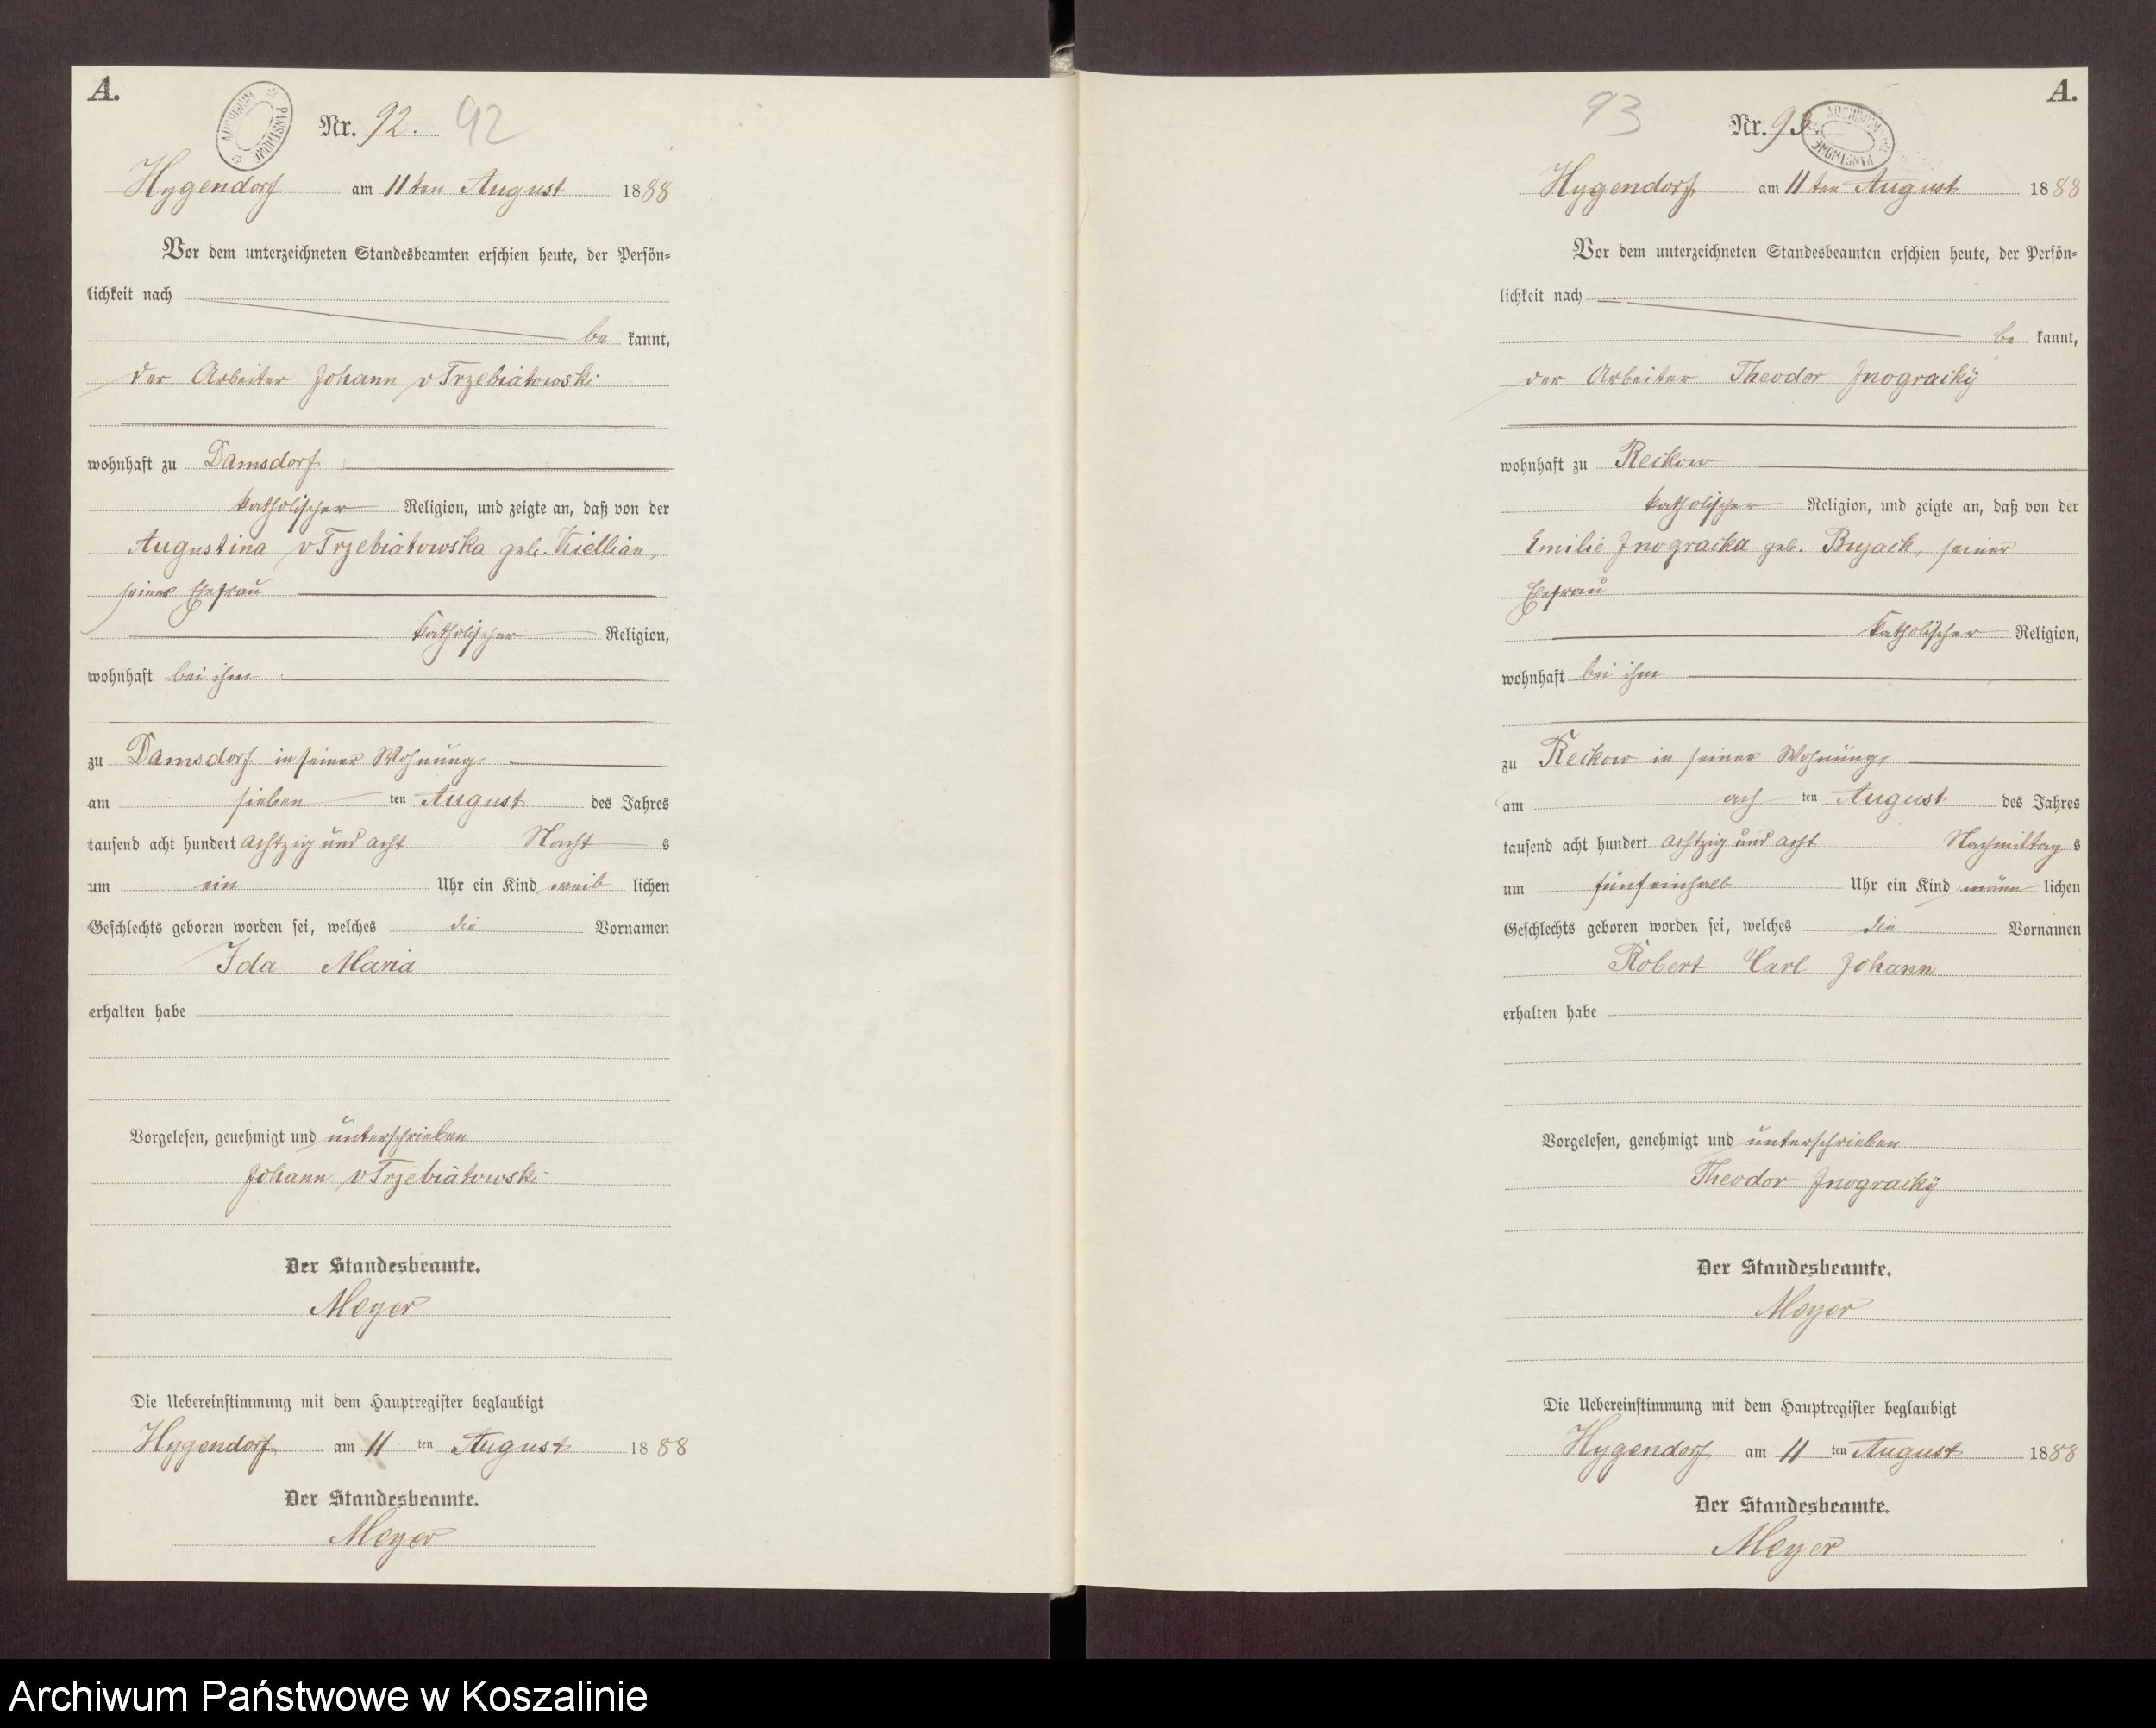 A.
ARCHIWUM PAŃSTWOWE
Nr. 92. 92
Hygendorf am 11ten August 1888
Vor dem unterzeichneten Standesbeamten erschien heute, der Persön-
lichkeit nach
be kannt,
der Arbeiter Johann v Trzebiatowski
wohnhaft zu Damsdorf
katholischer Religion, und zeigte an, daß von der
Augustina v Trzebiatowska geb. Kiellian,
seiner Ehefrau
katholischer Religion,
wohnhaft bei ihm
zu Damsdorf in seiner Wohnung
am sieben ten August des Jahres
tausend acht hundert achtzig und acht Nacht s
um ein Uhr ein Kind weib lichen
Geschlechts geboren worden sei, welches die Vornamen
Ida Maria
erhalten habe
Vorgelesen, genehmigt und unterschrieben
Johann v Trzebiatowski
Der Standesbeamte.
Meyer
Die Uebereinstimmung mit dem Hauptregister beglaubigt
Hygendorf am 11 ten August 1888
Der Standesbeamte.
Meyer
A.
93 Nr. 93.
ARCHIWUM PAŃSTWOWE
Hygendorf am 11ten August 1888
Vor dem unterzeichneten Standesbeamten erschien heute, der Persön-
lichkeit nach
be kannt,
der Arbeiter Theodor Jnogracky
wohnhaft zu Reckow
katholischer Religion, und zeigte an, daß von der
Emilie Jnogracka geb. Bryack, seiner
Ehefrau
katholischer Religion,
wohnhaft bei ihm
zu Reckow in seiner Wohnung,
am ach ten August des Jahres
tausend acht hundert achtzig und acht Nachmittag s
um fünfeinhalb Uhr ein Kind männ lichen
Geschlechts geboren worden sei, welches die Vornamen
Robert Carl Johann
erhalten habe
Vorgelesen, genehmigt und unterschrieben
Theodor Jnogracky
Der Standesbeamte.
Meyer
Die Uebereinstimmung mit dem Hauptregister beglaubigt
Hygendorf am 11 ten August 1888
Der Standesbeamte.
Meyer
Archiwum Państwowe w Koszalinie